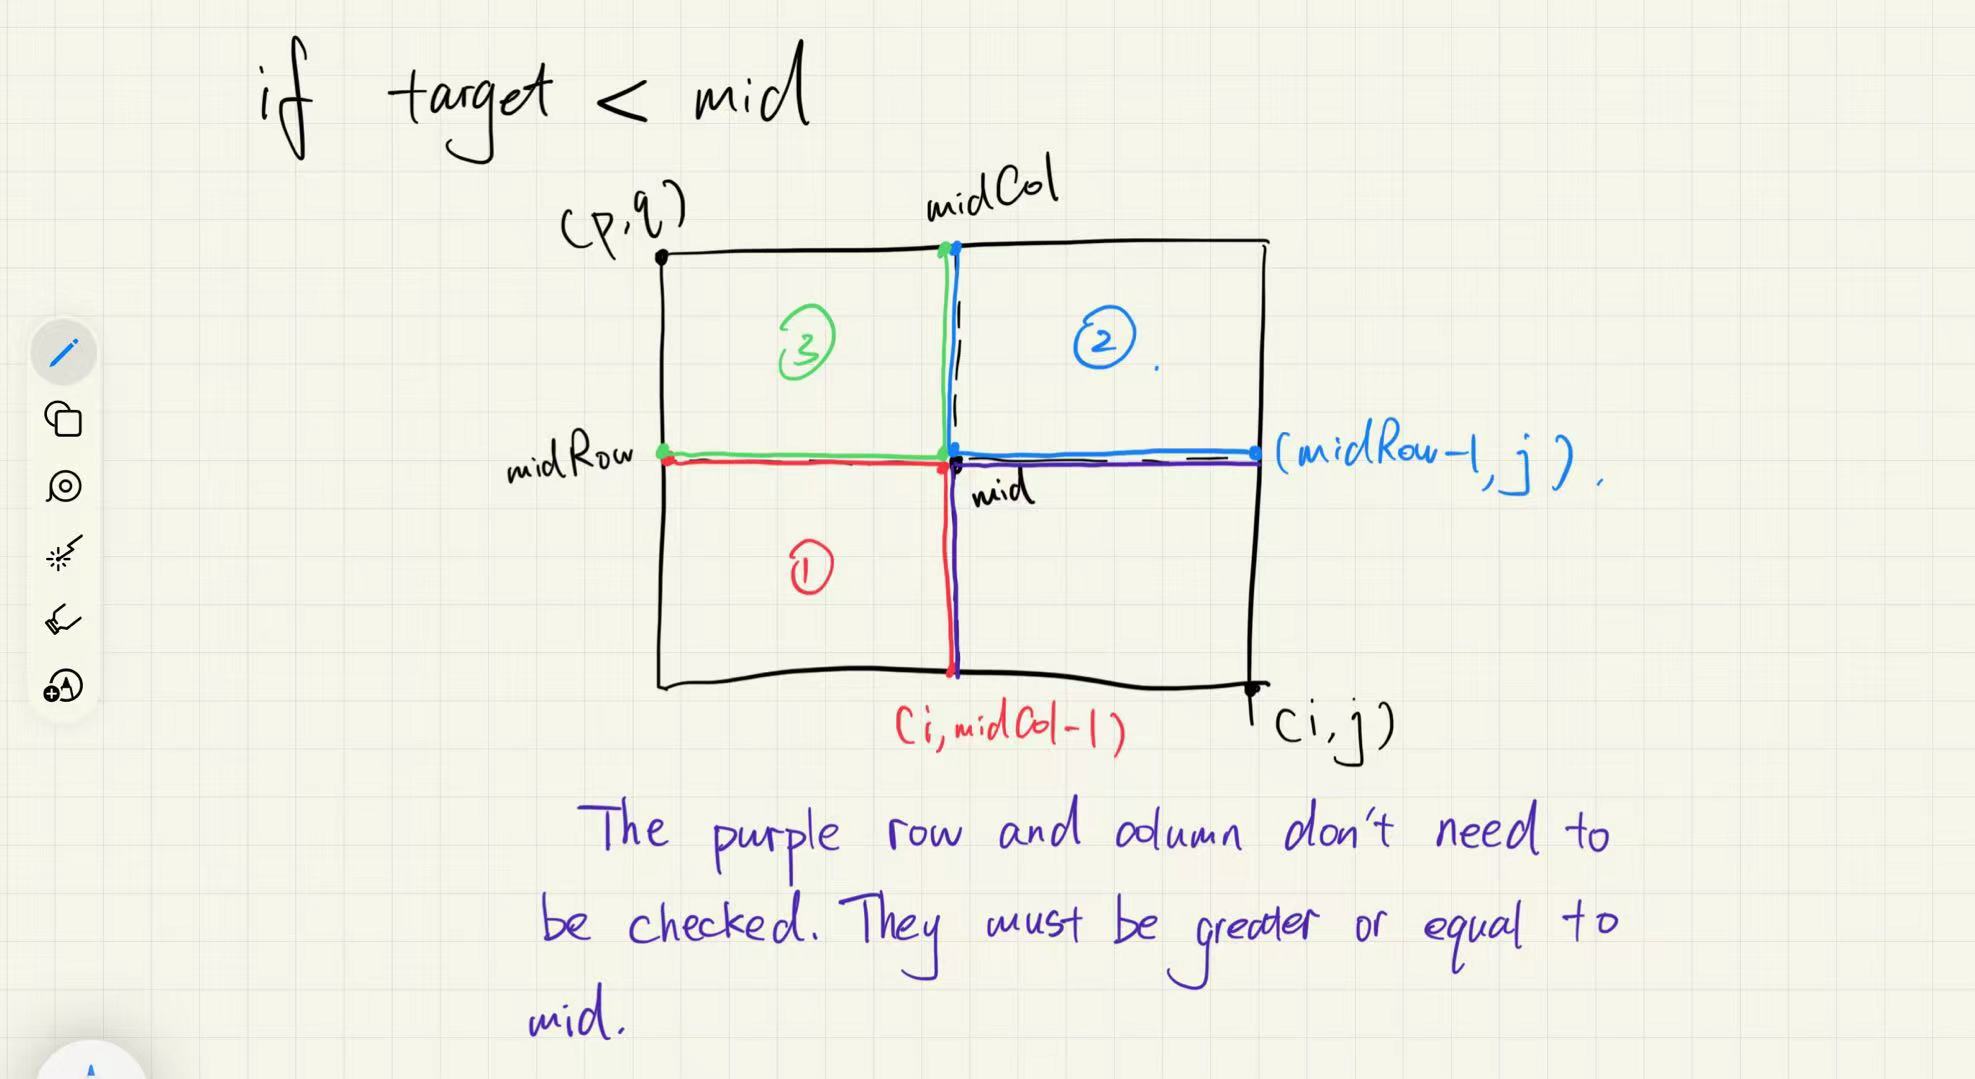 if target < mid
(p,q)
midCol
③
②
midRow
(midRow-1,j).
mid
①
(i,midCol-1)
(i,j)
The purple row and column don't need to
be checked. They must be greater or equal to
mid.